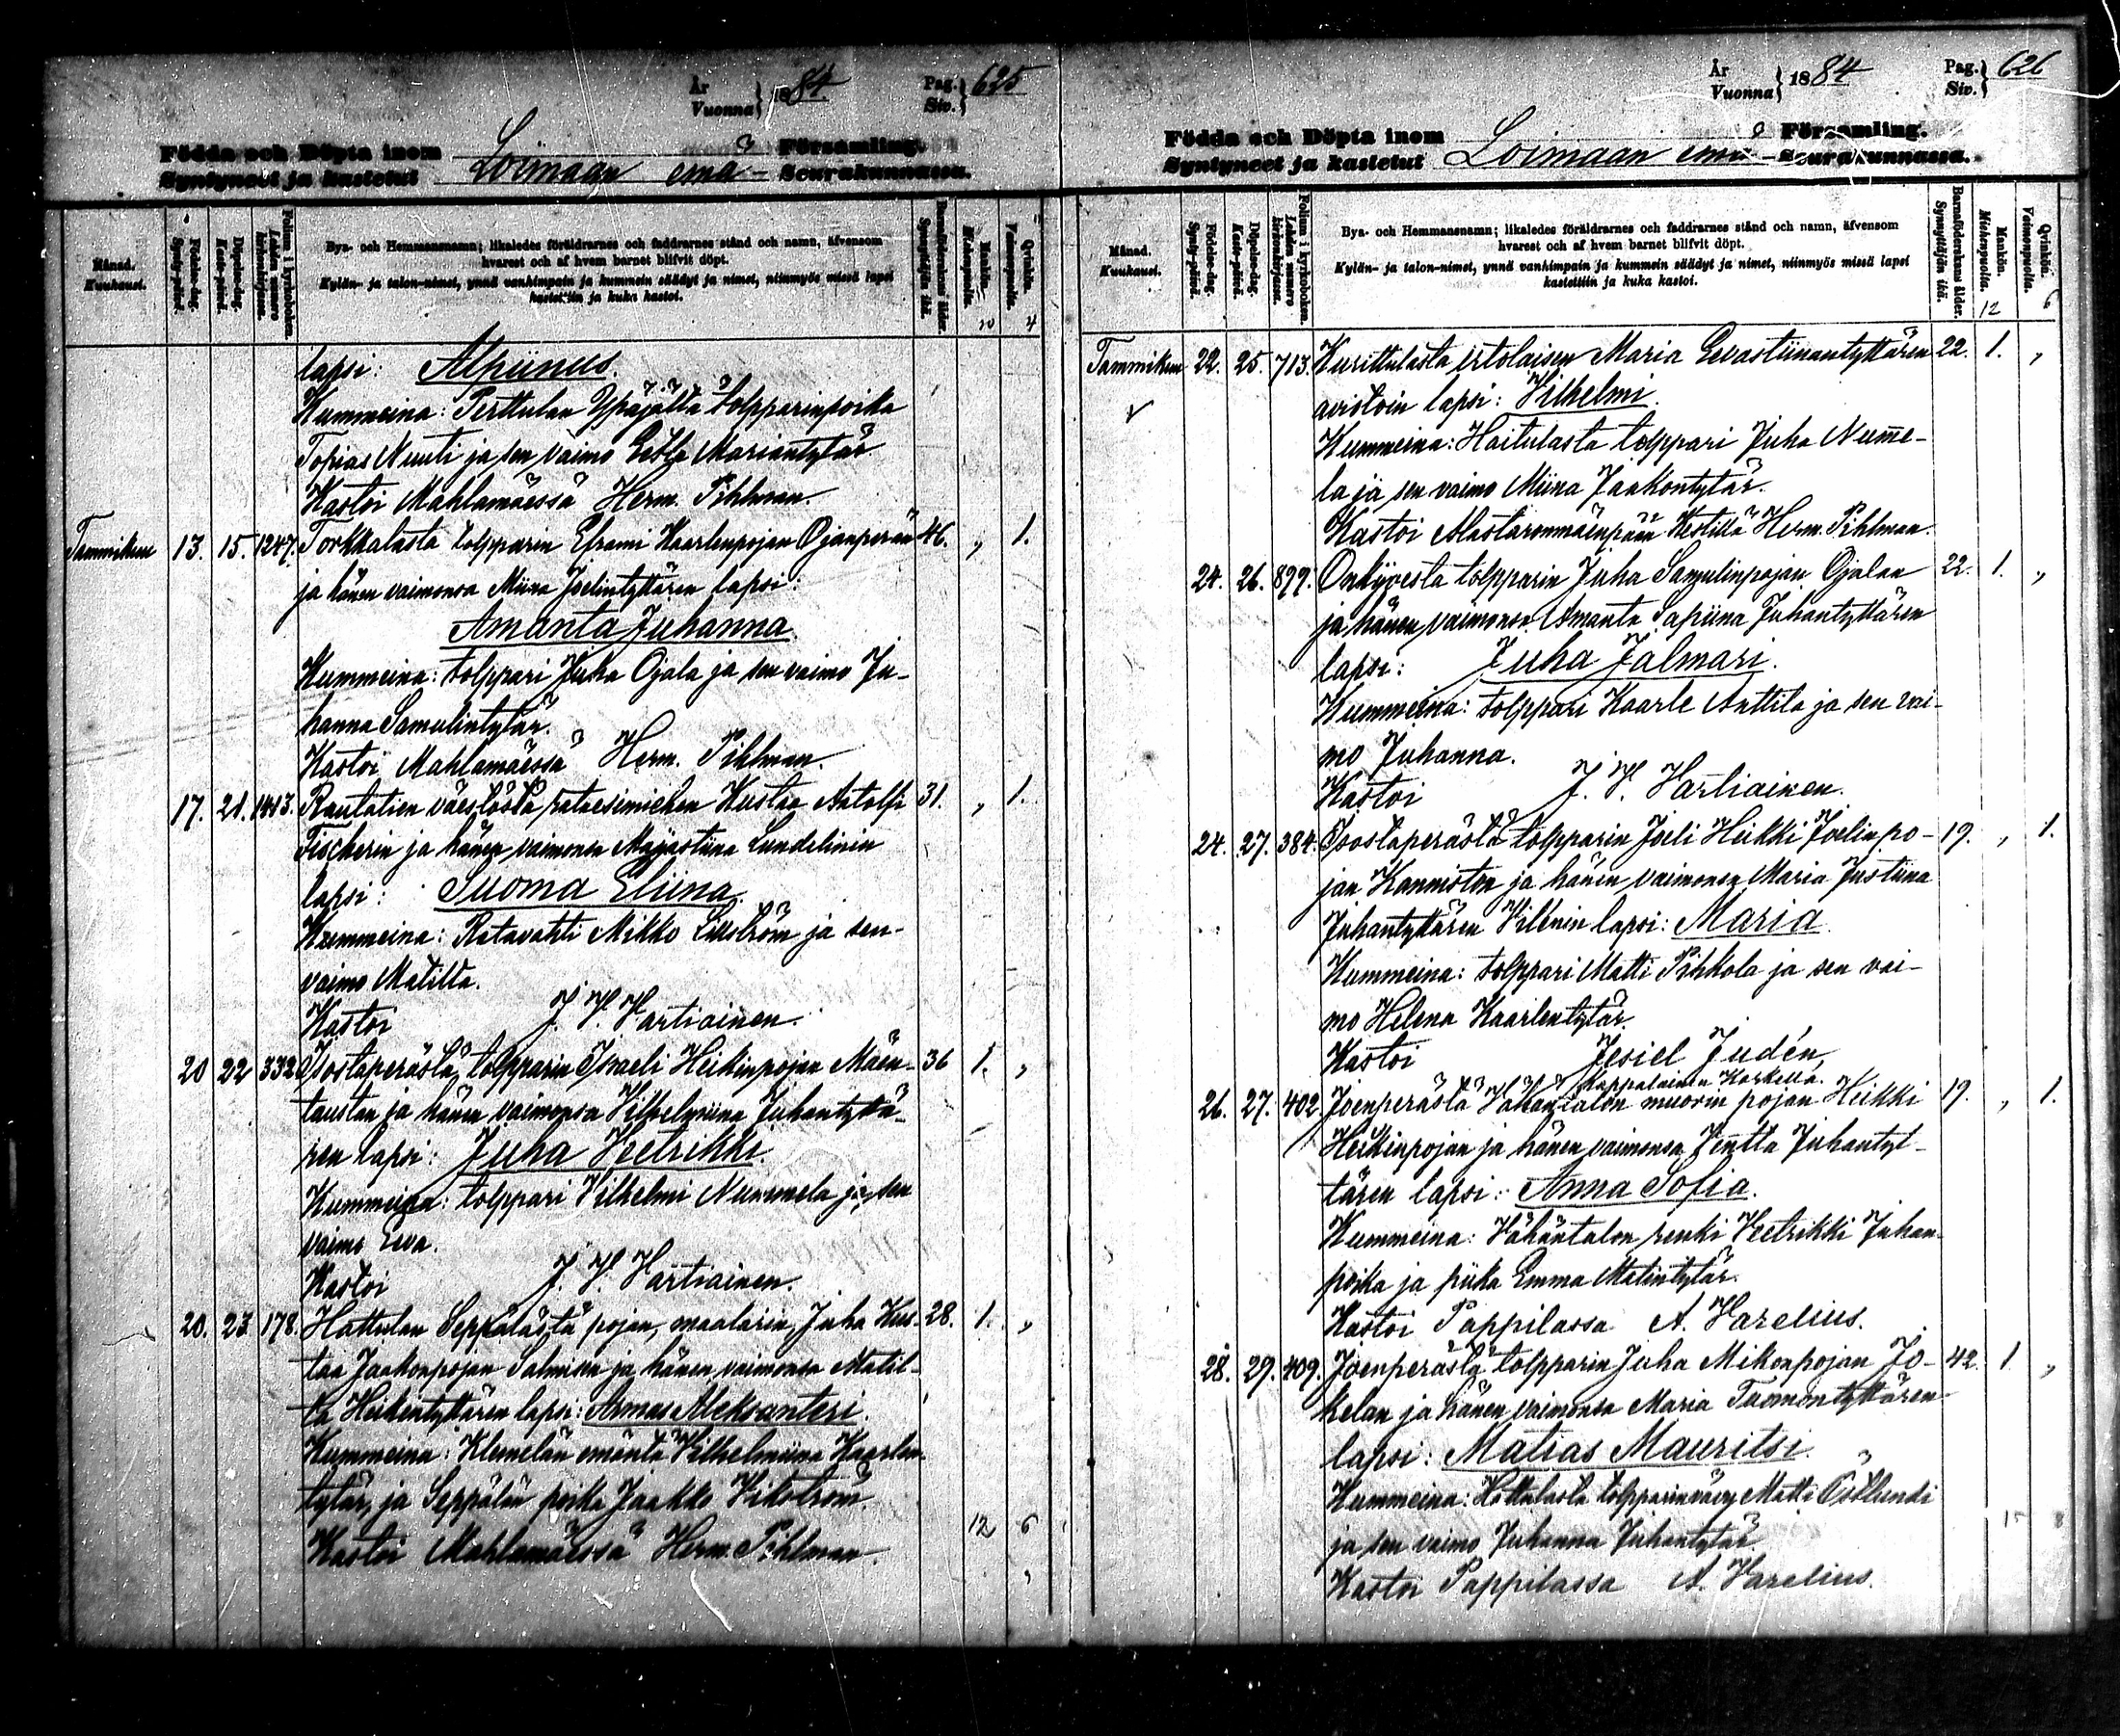 År
Vuonna } 1884
Pag.
Siv. } 625
Födda och Döpta inom
Syntyneet ja kastetut
Loimaan emä-
Församling.
Seurakunnassa.
Månad.
Kuukausi.
Födelse-dag.
Synty-päivä.
Döpelse-dag.
Kaste-päivä.
Folium i kyrkoboken.
Lehden numero kirkonkirjassa.
Bya- och Hemmansnamn; likaledes föräldrarnes och faddrarnes stånd och namn, äfvensom
hvarest och af hvem barnet blifvit döpt.
Kylän- ja talon-nimet, ynnä vanhimpain ja kummein säädyt ja nimet, niinmyös missä lapsi
kastettiin ja kuka kastoi.
Barnaföderskans ålder.
Synnyttäjän ikä.
Mankön.
Miehenpuolia.
Qvinkön.
Vaimonpuolia.
10 4
lapsi: Alpiinus.
Kummeina: Perttulan Ypäjältä tolpparinpoika
Topias Nuuti ja sen vaimo Eetla Mariantytär
Kastoi Mahlamäessä Herm. Pihlman.
Tammikuu 13. 15. 1247. Torkkalasta tolpparin Eframi Kaarlenpojan Ojanperän 46. „ 1.
ja hänen vaimonsa Miina Joelintyttären lapsi:
Amanta Juhanna.
Kummeina: tolppari Juha Ojala ja sen vaimo Ju-
hanna Samulintytär.
Kastoi Mahlamäessä Herm. Pihlman.
17. 21. 1413. Rautatien väestöstä rataesimiehen Kustaa Aatolfi 31. „ 1.
Fischerin ja hänen vaimonsa Majastiina Lundelinin
lapsi: Suoma Eliina.
Kummeina: Ratavahti Mikko Lillström ja sen
vaimo Matilta.
Kastoi J. V. Vartiainen.
20 22 332 Isostaperästä tolpparin Israeli Heikinpojan Mäen- 36 1. „
taustan ja hänen vaimonsa Vilhelmiina Juhantyttä-
ren lapsi: Juha Veetrikki.
Kummeina: tolppari Vilhelmi Nummela ja sen
vaimo Eeva.
Kastoi J. V. Vartiainen.
20. 23. 178. Hattulan Seppälästä pojan, maalarin, Juha Kus- 28. 1. „
taa Jaakonpojan Salmisen ja hänen vaimonsa Matil-
ta Heikintyttären lapsi: Armas Aleksanteri.
Kummeina: Klemelän emäntä Vilhelmiina Kaarlen-
tytär, ja Seppälän poika Jaakko Vikström
Kastoi Mahlamäessä Herm. Pihlman.
12 6
År
Vuonna } 1884
Pag.
Siv. } 626
Födda och Döpta inom
Syntyneet ja kastetut
Loimaan emä-
Församling.
Seurakunnassa.
Månad.
Kuukausi.
Födelse-dag.
Synty-päivä.
Döpelse-dag.
Kaste-päivä.
Folium i kyrkoboken.
Lehden numero kirkonkirjassa.
Bya- och Hemmansnamn; likaledes föräldrarnes och faddrarnes stånd och namn, äfvensom
hvarest och af hvem barnet blifvit döpt.
Kylän- ja talon-nimet, ynnä vanhimpain ja kummein säädyt ja nimet, niinmyös missä lapsi
kastettiin ja kuka kastoi.
Barnaföderskans ålder.
Synnyttäjän ikä.
Mankön.
Miehenpuolia.
Qvinkön.
Vaimonpuolia.
12 6
Tammikuu 22. 25. 713. Kurittulasta irtolaisen Maria Eevastiinantyttären 22. 1. „
aviotoin lapsi: Vilhelmi.
Kummeina: Haitulasta tolppari Juha Nume-
la ja sen vaimo Miina Jaakontytär.
Kastoi Alastaronmäenpään Kestillä Herm. Pihlman.
24. 26. 899. Onkijoesta tolpparin Juha Samulinpojan Ojalan 22. 1. „
ja hänen vaimonsa Amanta Sapiina Juhantyttären
lapsi: Juha Jalmari.
Kummeina: tolppari Kaarle Anttila ja sen vai-
mo Juhanna.
Kastoi J. V. Vartiainen.
24. 27. 384. Isostaperästä tolpparin Joeli Heikki Joelinpo- 19. „ 1.
jan Kanniston ja hänen vaimonsa Maria Justiina
Juhantyttären Vilenin lapsi: Maria.
Kummeina: tolppari Matti Pihkola ja sen vai-
mo Helena Kaarlentytär.
Kastoi Jesiel Judén,
Kappalainen Koskella.
26. 27. 402. Joenperästä Vähäntalon muorin pojan Heikki 19. „ 1.
Heikinpojan ja hänen vaimonsa Jentta Juhantyt-
tären lapsi: Anna Sofia.
Kummeina: Vähäntalon renki Veetrikki Juhan-
poika ja piika Emma Matintytär.
Kastoi Pappilassa A. Varelius.
28. 29. 409. Joenperästä tolpparin Juha Mikonpojan Jo- 42. 1. „
kelan ja hänen vaimonsa Maria Tuomontyttären
lapsi: Matias Mauritsi.
Kummeina: Hattulasta tolpparinvävy Matti Östlundi
ja sen vaimo Juhanna Juhantytär.
Kastoi Pappilassa A. Varelius.
15 8